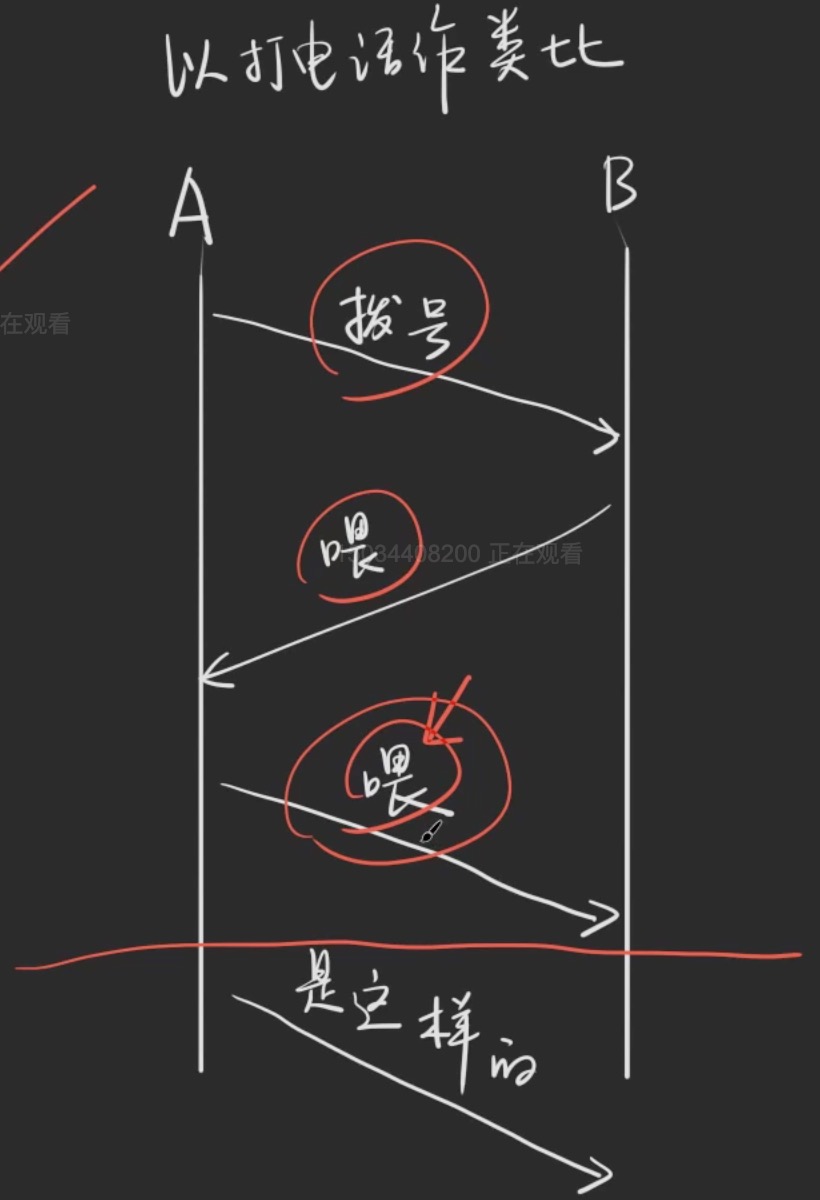 以打电话作类比
A
B
在观看
拨号
喂
34408200 正在观看
喂
是这样的